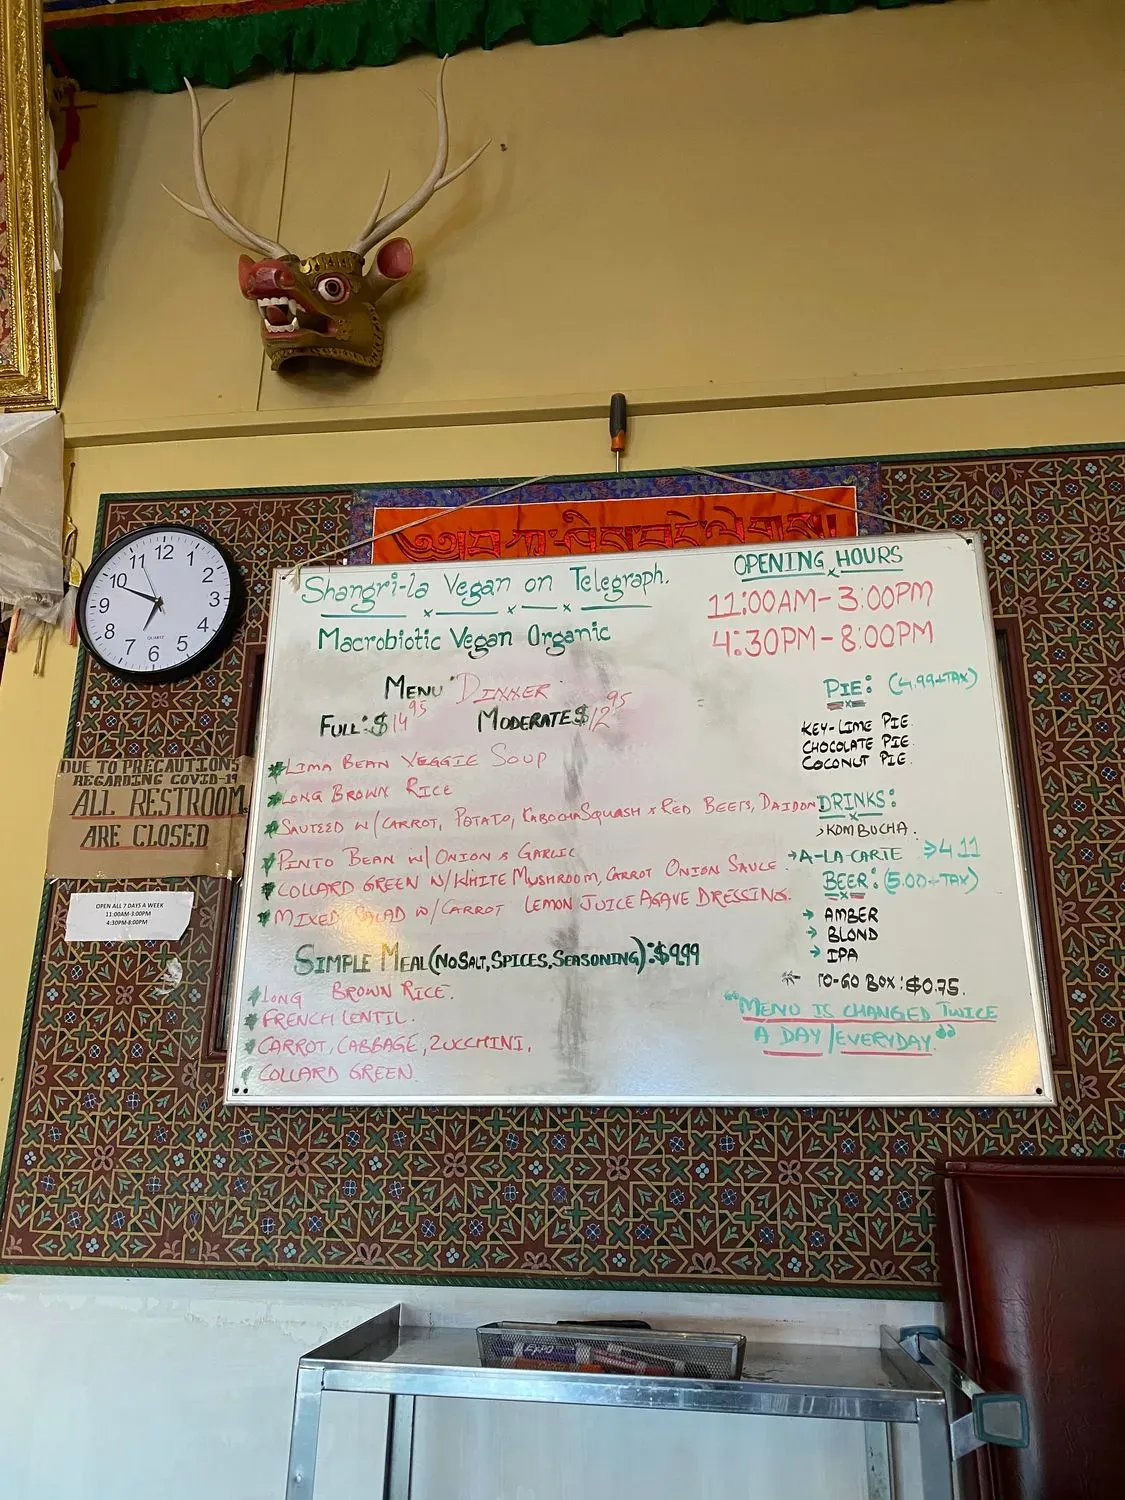 Shangri-la Vegan on Telegraph.
Macrobiotic Vegan Organic
MENU "DINNER"
FULL: $14.95 MODERATE $12.95
LIMA BEAN VEGGIE SOUP
LONG BROWN RICE
SAUTEED W/CARROT, POTATO, KABOCHA SQUASH & RED BEETS, DAIDON
PINTO BEAN W/ ONION & GARLIC
COLLARD GREEN W/WHITE MUSHROOM, CARROT ONION SAUCE.
MIXED SALAD W/CARROT LEMON JUICE AGAVE DRESSING.
SIMPLE MEAL (NO SALT, SPICES, SEASONING): $9.99
LONG BROWN RICE.
FRENCH LENTIL.
CARROT, CABBAGE, ZUCCHINI,
COLLARD GREEN.
OPENING HOURS
11:00AM-3:00PM
4:30PM-8:00PM
PIE: (4.99+TAX)
KEY-LIME PIE.
CHOCOLATE PIE.
COCONUT PIE.
DRINKS:
KOMBUCHA.
A-LA-CARTE 4.11
BEER: (5.00+TAX)
AMBER
BLOND
IPA
TO-GO BOX: $0.75.
"MENU IS CHANGED TWICE
A DAY/EVERYDAY."
12
1
2
3
4
5
6
7
8
9
10
11
QUARTZ
DUE TO PRECAUTIONS
REGARDING COVID-19
ALL RESTROOMS
ARE CLOSED
OPEN ALL 7 DAYS A WEEK
11:00AM-3:00PM
4:30PM-8:00PM